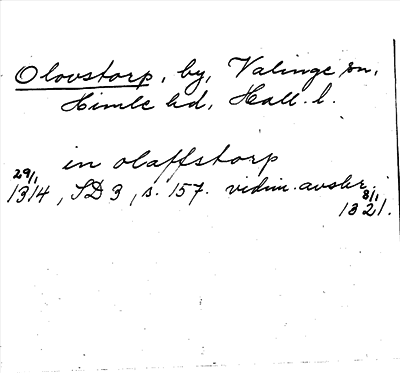 Olovstorp, by, Valinge sn,
Himle hd, Hall. l.
in olaffstorp
29/1
1314, SD 3, s. 157. vidim. avskr.
8/1
1321.